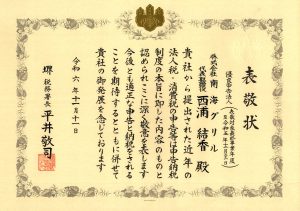 表敬状
優良申告法人
株式会社 南海グリル
代表取締役 西浦 結香 殿
貴社から提出された近年の
法人税・消費税の申告等は申告納税
制度の本旨に即した内容のものと
認められここに深く敬意を表します
今後とも適正な申告と納税をされる
ことを期待するとともに併せて
貴社の御発展を念じております
令和六年十一月十一日
堺税務署長 平井敬司